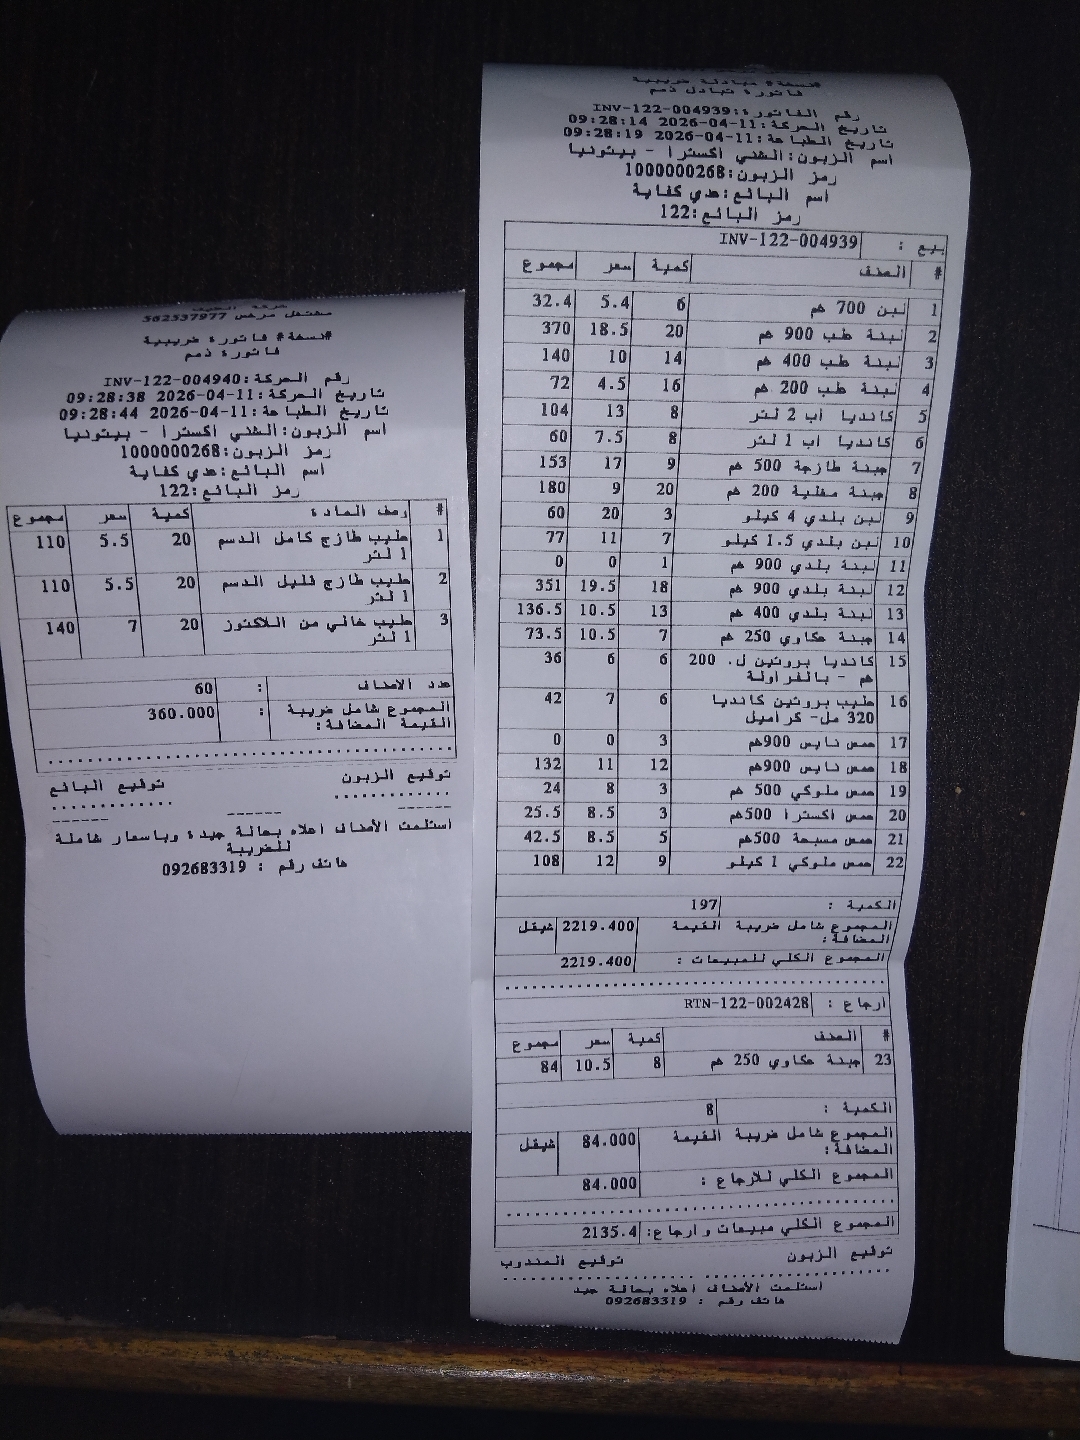 مشتغل مرخص 562537977
#نسخة# فاتورة ضريبية
فاتورة ذمم
رقم الحركة:INV-122-004940
تاريخ الحركة:11-04-2026 09:28:38
تاريخ الطباعة:11-04-2026 09:28:44
اسم الزبون:الشني اكسترا - بيتونيا
رمز الزبون:1000000268
اسم البائع:هدي كفاية
رمز البائع:122
# وصف المادة كمية سعر مجموع
1 حليب طازج كامل الدسم 20 5.5 110
1 لتر
2 حليب طازج قليل الدسم 20 5.5 110
1 لتر
3 حليب خالي من اللاكتوز 20 7 140
1 لتر
عدد الاصناف : 60
المجموع شامل ضريبة : 360.000
القيمة المضافة:
توقيع الزبون توقيع البائع
استلمت الأصناف اعلاه بحالة جيدة وباسعار شاملة
للضريبة
هاتف رقم : 092683319
#نسخة# مبادلة ضريبية
فاتورة تبادل ذمم
رقم الفاتورة:INV-122-004939
تاريخ الحركة:11-04-2026 09:28:14
تاريخ الطباعة:11-04-2026 09:28:19
اسم الزبون:الشني اكسترا - بيتونيا
رمز الزبون:1000000268
اسم البائع:هدي كفاية
رمز البائع:122
بيع : INV-122-004939
# الصنف كمية سعر مجموع
1 لبن 700 غم 6 5.4 32.4
2 لبنة طب 900 غم 20 18.5 370
3 لبنة طب 400 غم 14 10 140
4 لبنة طب 200 غم 16 4.5 72
5 كانديا اب 2 لتر 8 13 104
6 كانديا اب 1 لتر 8 7.5 60
7 جبنة طازجة 500 غم 9 17 153
8 جبنة مغلية 200 غم 20 9 180
9 لبن بلدي 4 كيلو 3 20 60
10 لبن بلدي 1.5 كيلو 7 11 77
11 لبنة بلدي 900 غم 1 0 0
12 لبنة بلدي 900 غم 18 19.5 351
13 لبنة بلدي 400 غم 13 10.5 136.5
14 جبنة عكاوي 250 غم 7 10.5 73.5
15 كانديا بروتين ل. 200 6 6 36
غم - بالفراولة
16 حليب بروتين كانديا 6 7 42
320 مل- كراميل
17 حمص نايس 900غم 3 0 0
18 حمص نايس 900غم 12 11 132
19 حمص ملوكي 500 غم 3 8 24
20 حمص اكسترا 500غم 3 8.5 25.5
21 حمص مسبحة 500غم 5 8.5 42.5
22 حمص ملوكي 1 كيلو 9 12 108
الكمية : 197
المجموع شامل ضريبة القيمة 2219.400 شيقل
المضافة:
المجموع الكلي للمبيعات : 2219.400
ارجاع : RTN-122-002428
# الصنف كمية سعر مجموع
23 جبنة عكاوي 250 غم 8 10.5 84
الكمية : 8
المجموع شامل ضريبة القيمة 84.000 شيقل
المضافة:
المجموع الكلي للارجاع : 84.000
المجموع الكلي مبيعات وارجاع: 2135.4
توقيع الزبون توقيع المندوب
استلمت الأصناف اعلاه بحالة جيد
هاتف رقم : 092683319